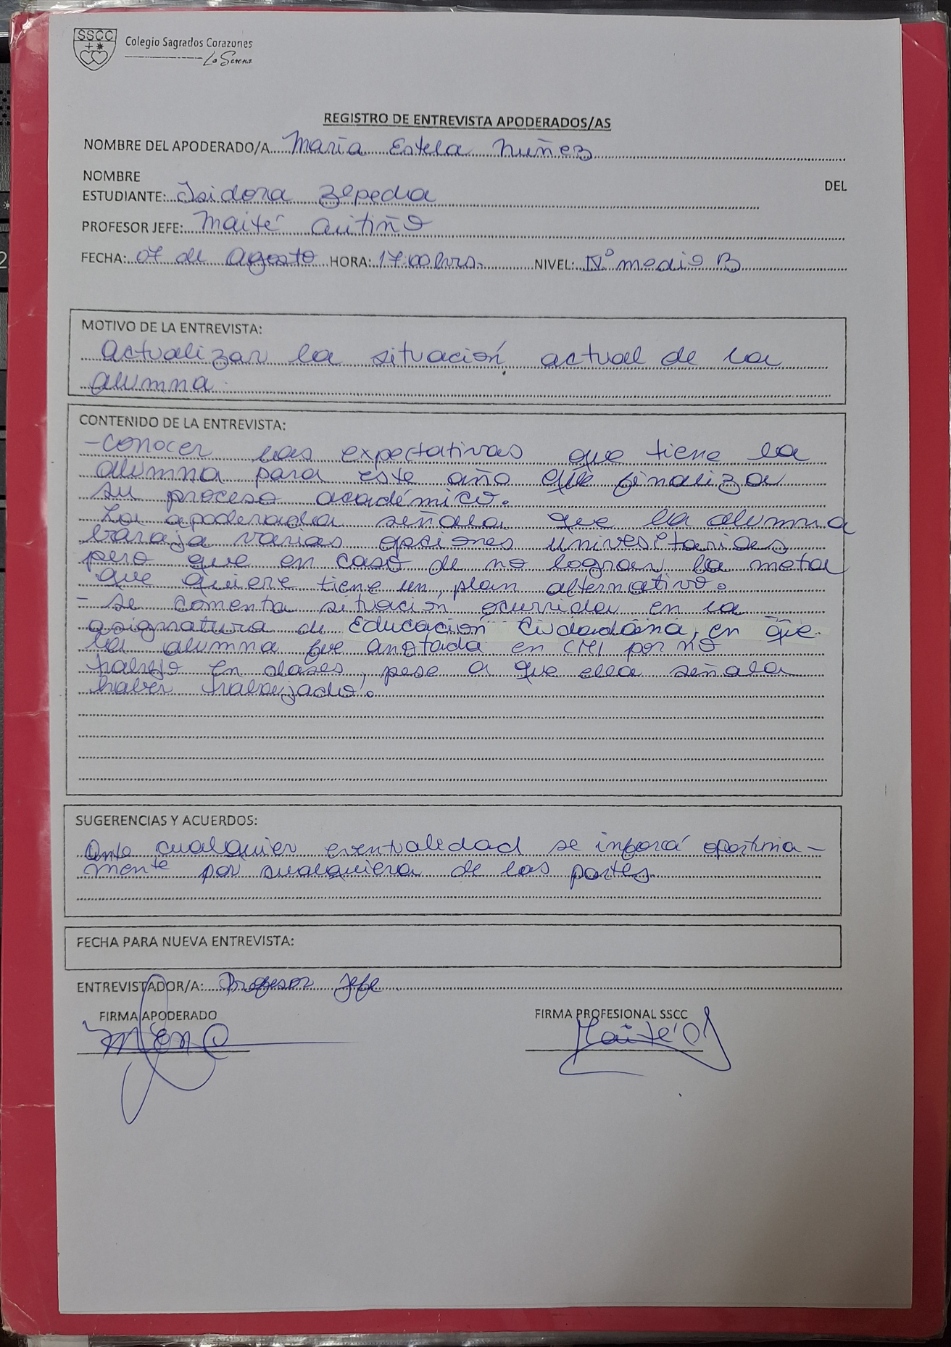 SSCC
Colegio Sagrados Corazones
La Serena
REGISTRO DE ENTREVISTA APODERADOS/AS
NOMBRE DEL APODERADO/A María Estela Nuñez
NOMBRE DEL
ESTUDIANTE: Isidora Zepeda
PROFESOR JEFE: Maité
FECHA: 07 de Agosto HORA: 17:00 hrs. NIVEL: IVº medio B
MOTIVO DE LA ENTREVISTA:
Actualizar la situación actual de la
alumna.
CONTENIDO DE LA ENTREVISTA:
- Conocer las expectativas que tiene la
alumna para este año que finaliza
su proceso académico.
La apoderada señala que la alumna
baraja varias opciones universitarias
pero que en caso de no lograr la meta
que quiere tiene un plan alternativo.
- Se comenta situación ocurrida en la
asignatura de Educación Ciudadana, en que
la alumna fue anotada en CMI por no
trabajo en clases, pese a que ella señala
haber trabajado.
SUGERENCIAS Y ACUERDOS:
Ante cualquier eventualidad se inforá oportuna-
mente por cualquiera de las partes.
FECHA PARA NUEVA ENTREVISTA:
ENTREVISTADOR/A: Profesor Jefe
FIRMA APODERADO FIRMA PROFESIONAL SSCC
Maité